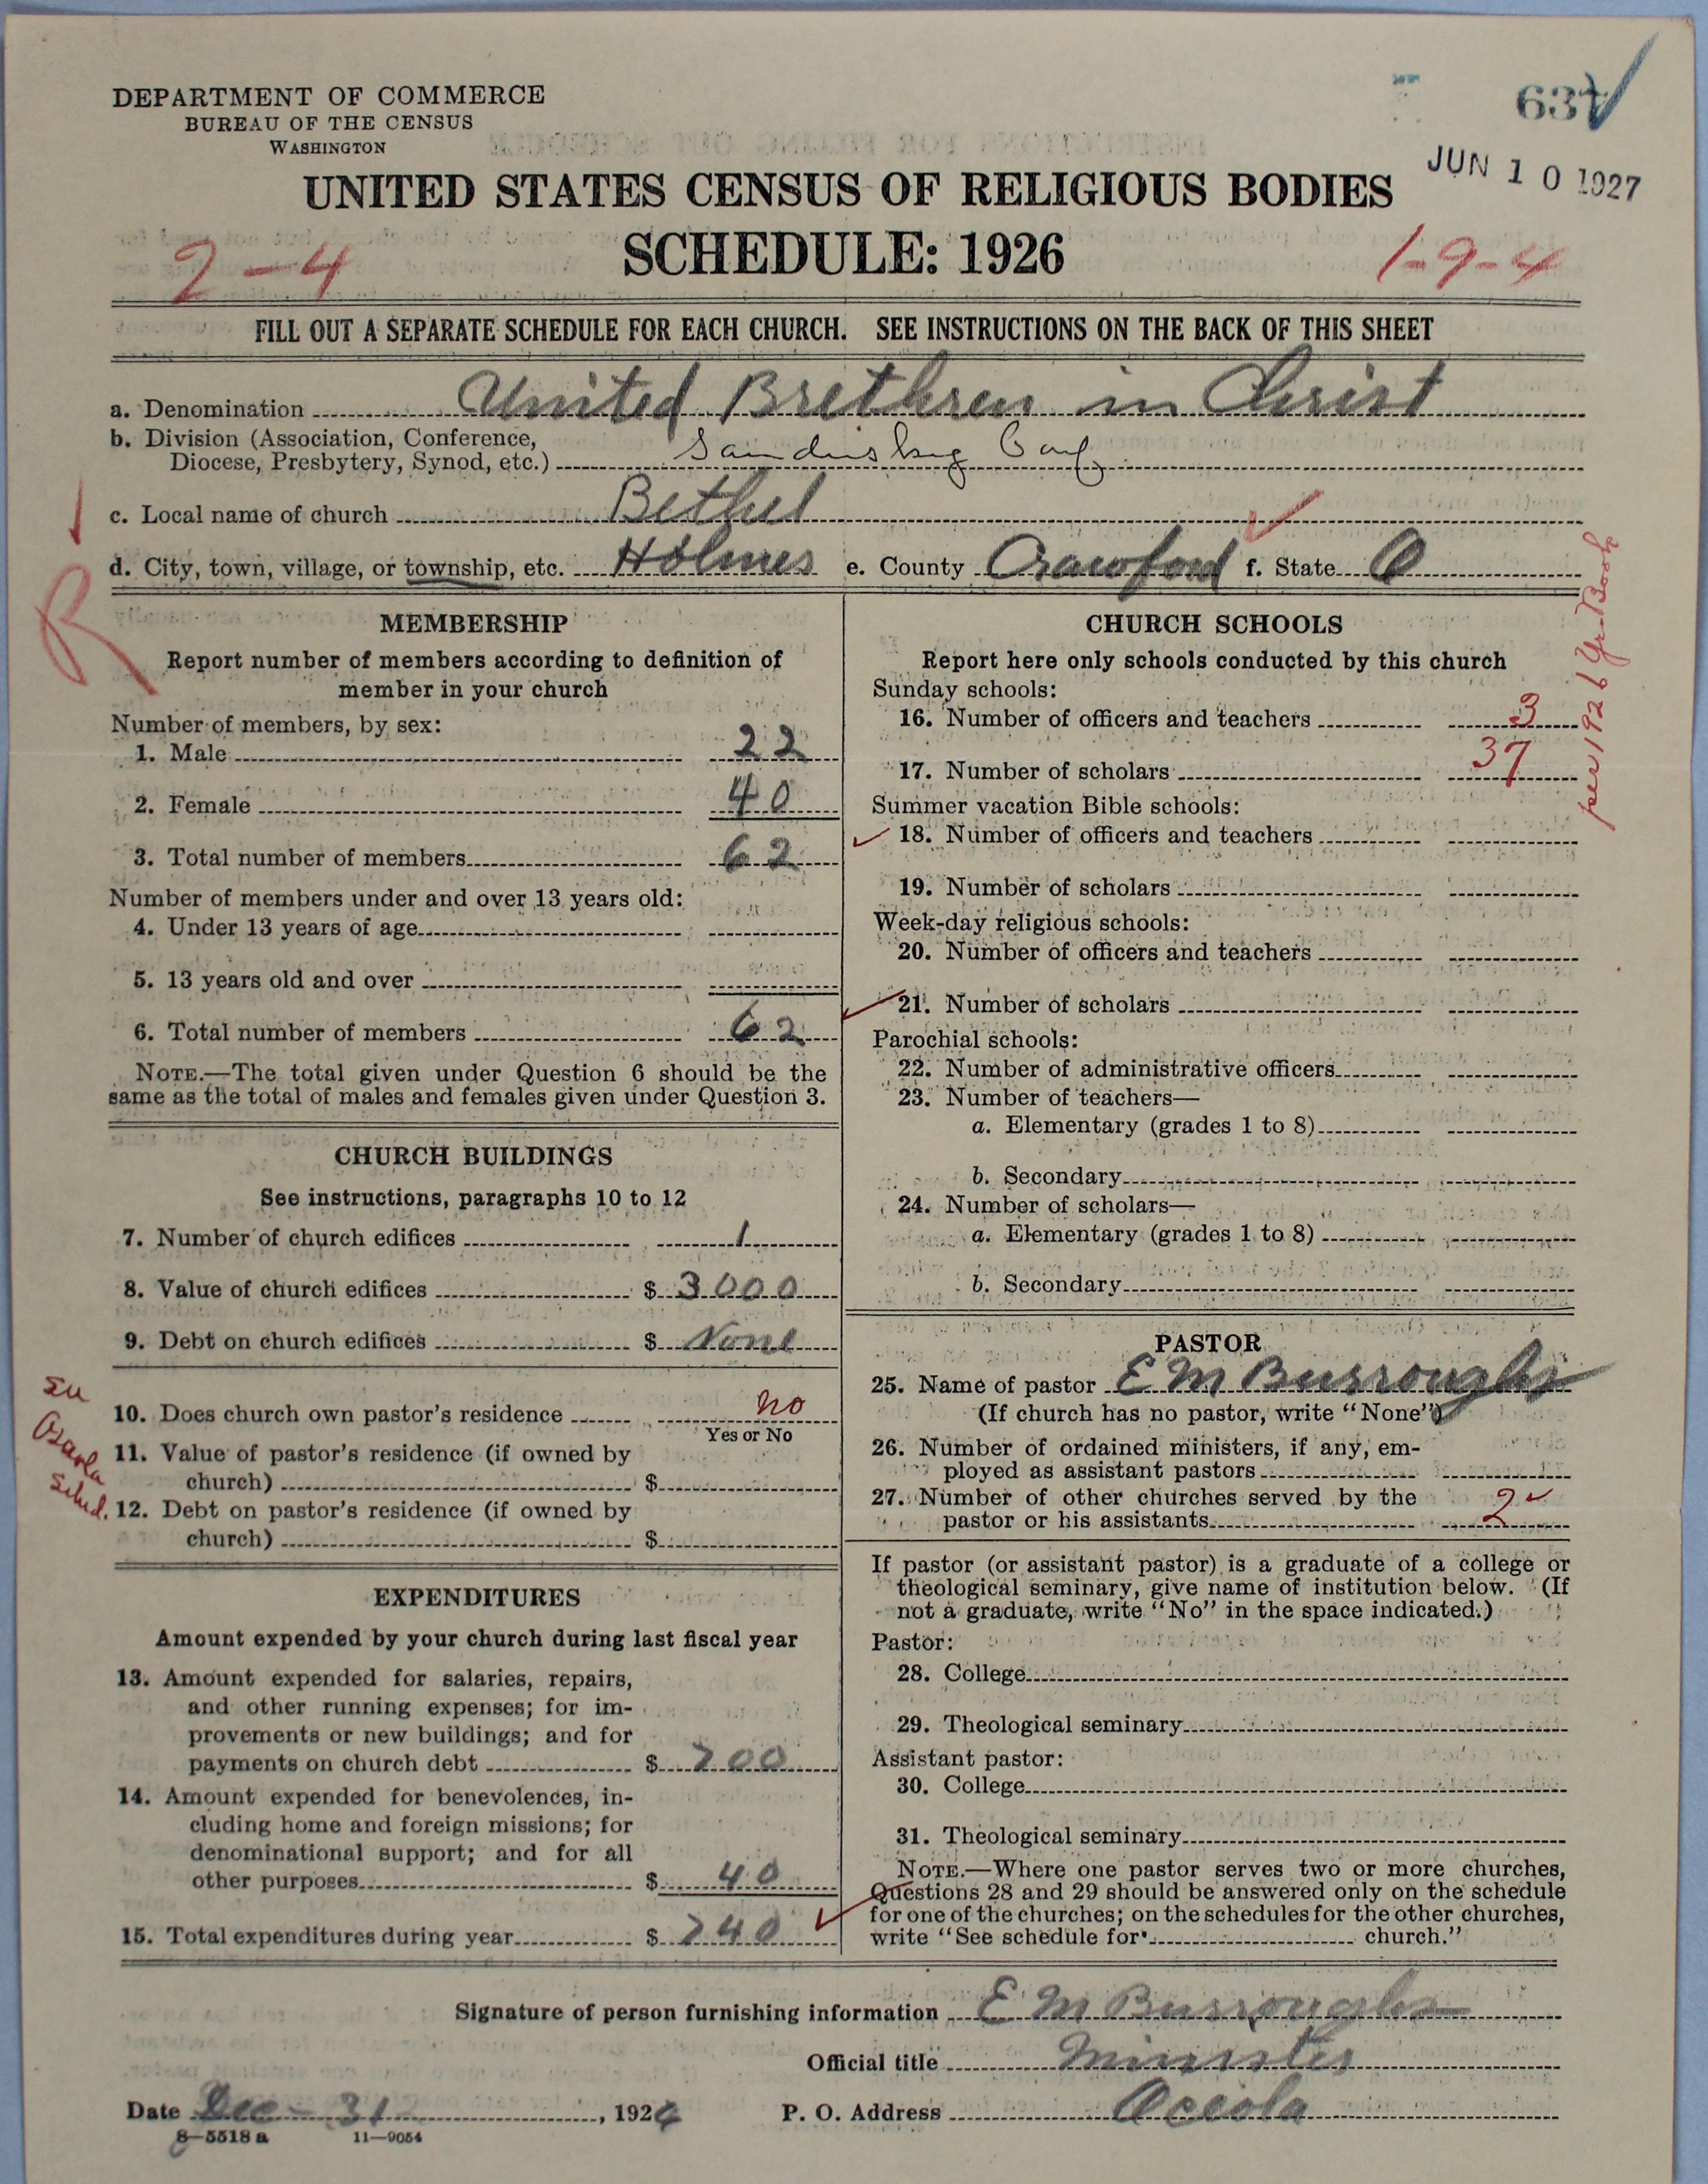 DEPARTMENT OF COMMERCE
BUREAU OF THE CENSUS
WASHINGTON
JUN 10 1927
UNITED STATES CENSUS OF RELIGIOUS BODIES
SCHEDULE: 1926
2-4
1-9-4
FILL OUT A SEPARATE SCHEDULE FOR EACH CHURCH. SEE INSTRUCTIONS ON THE BACK OF THIS SHEET
a. Denomination United Brethren in Christ
b. Division (Association, Conference,
Diocese, Presbytery, Synod, etc.) Sandusky Conf.
c. Local name of church Bethel
d. City, town, village, or township, etc. Holmes e. County Crawford f. State O
R
per 1926 Yr. Book
MEMBERSHIP
Report number of members according to definition of
member in your church
Number of members, by sex:
1. Male 22
2. Female 40
3. Total number of members 62
Number of members under and over 13 years old:
4. Under 13 years of age
5. 13 years old and over
6. Total number of members 62
NOTE.—The total given under Question 6 should be the
same as the total of males and females given under Question 3.
CHURCH BUILDINGS
See instructions, paragraphs 10 to 12
7. Number of church edifices 1
8. Value of church edifices $ 3000
9. Debt on church edifices $ None
10. Does church own pastor's residence no
Yes or No
11. Value of pastor's residence (if owned by
church) $
12. Debt on pastor's residence (if owned by
church) $
Sched.
EXPENDITURES
Amount expended by your church during last fiscal year
13. Amount expended for salaries, repairs,
and other running expenses; for im-
provements or new buildings; and for
payments on church debt $ 700
14. Amount expended for benevolences, in-
cluding home and foreign missions; for
denominational support; and for all
other purposes $ 40
15. Total expenditures during year $ 740
CHURCH SCHOOLS
Report here only schools conducted by this church
Sunday schools:
16. Number of officers and teachers 3
17. Number of scholars 37
Summer vacation Bible schools:
18. Number of officers and teachers
19. Number of scholars
Week-day religious schools:
20. Number of officers and teachers
21. Number of scholars
Parochial schools:
22. Number of administrative officers
23. Number of teachers—
a. Elementary (grades 1 to 8)
b. Secondary
24. Number of scholars—
a. Elementary (grades 1 to 8)
b. Secondary
PASTOR
25. Name of pastor E M Burroughs
(If church has no pastor, write "None")
26. Number of ordained ministers, if any, em-
ployed as assistant pastors
27. Number of other churches served by the
pastor or his assistants 2
If pastor (or assistant pastor) is a graduate of a college or
theological seminary, give name of institution below. (If
not a graduate, write "No" in the space indicated.)
Pastor:
28. College
29. Theological seminary
Assistant pastor:
30. College
31. Theological seminary
NOTE.—Where one pastor serves two or more churches,
Questions 28 and 29 should be answered only on the schedule
for one of the churches; on the schedules for the other churches,
write "See schedule for church."
Signature of person furnishing information E M Burroughs
Official title Minister
Date Dec - 31, 1926 P. O. Address Oceola
8-5518 a 11-9054